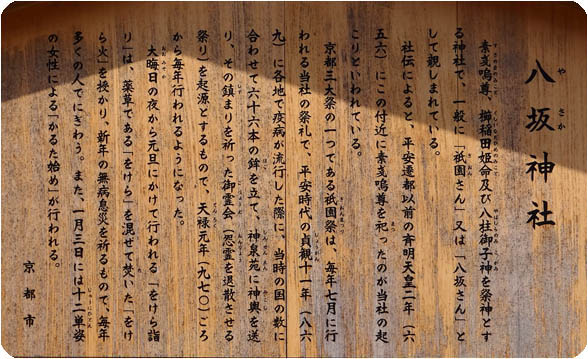 八坂神社
素戔嗚尊、櫛稲田姫命及び八柱御子神を祭神とす
る神社で、一般に「祇園さん」又は「八坂さん」と
して親しまれている。
社伝によると、平安遷都以前の斉明天皇二年（六
五六）にこの付近に素戔嗚尊を祀ったのが当社の起
こりといわれている。
京都三大祭の一つである祇園祭は、毎年七月に行
われる当社の祭礼で、平安時代の貞観十一年（八六
九）に各地で疫病が流行した際に、当時の国の数に
合わせて六十六本の鉾を立て、神泉苑に神輿を送
り、その鎮まりを祈った御霊会（怨霊を退散させる
祭り）を起源とするもので、天禄元年（九七〇）ごろ
から毎年行われるようになった。
大晦日の夜から元旦にかけて行われる「をけら詣
り」は、薬草である「をけら」を混ぜて焚いた「をけ
ら火」を授かり、新年の無病息災を祈るもので、毎年
多くの人でにぎわう。また、一月三日には十二単姿
の女性による「かるた始め」が行われる。
京都市